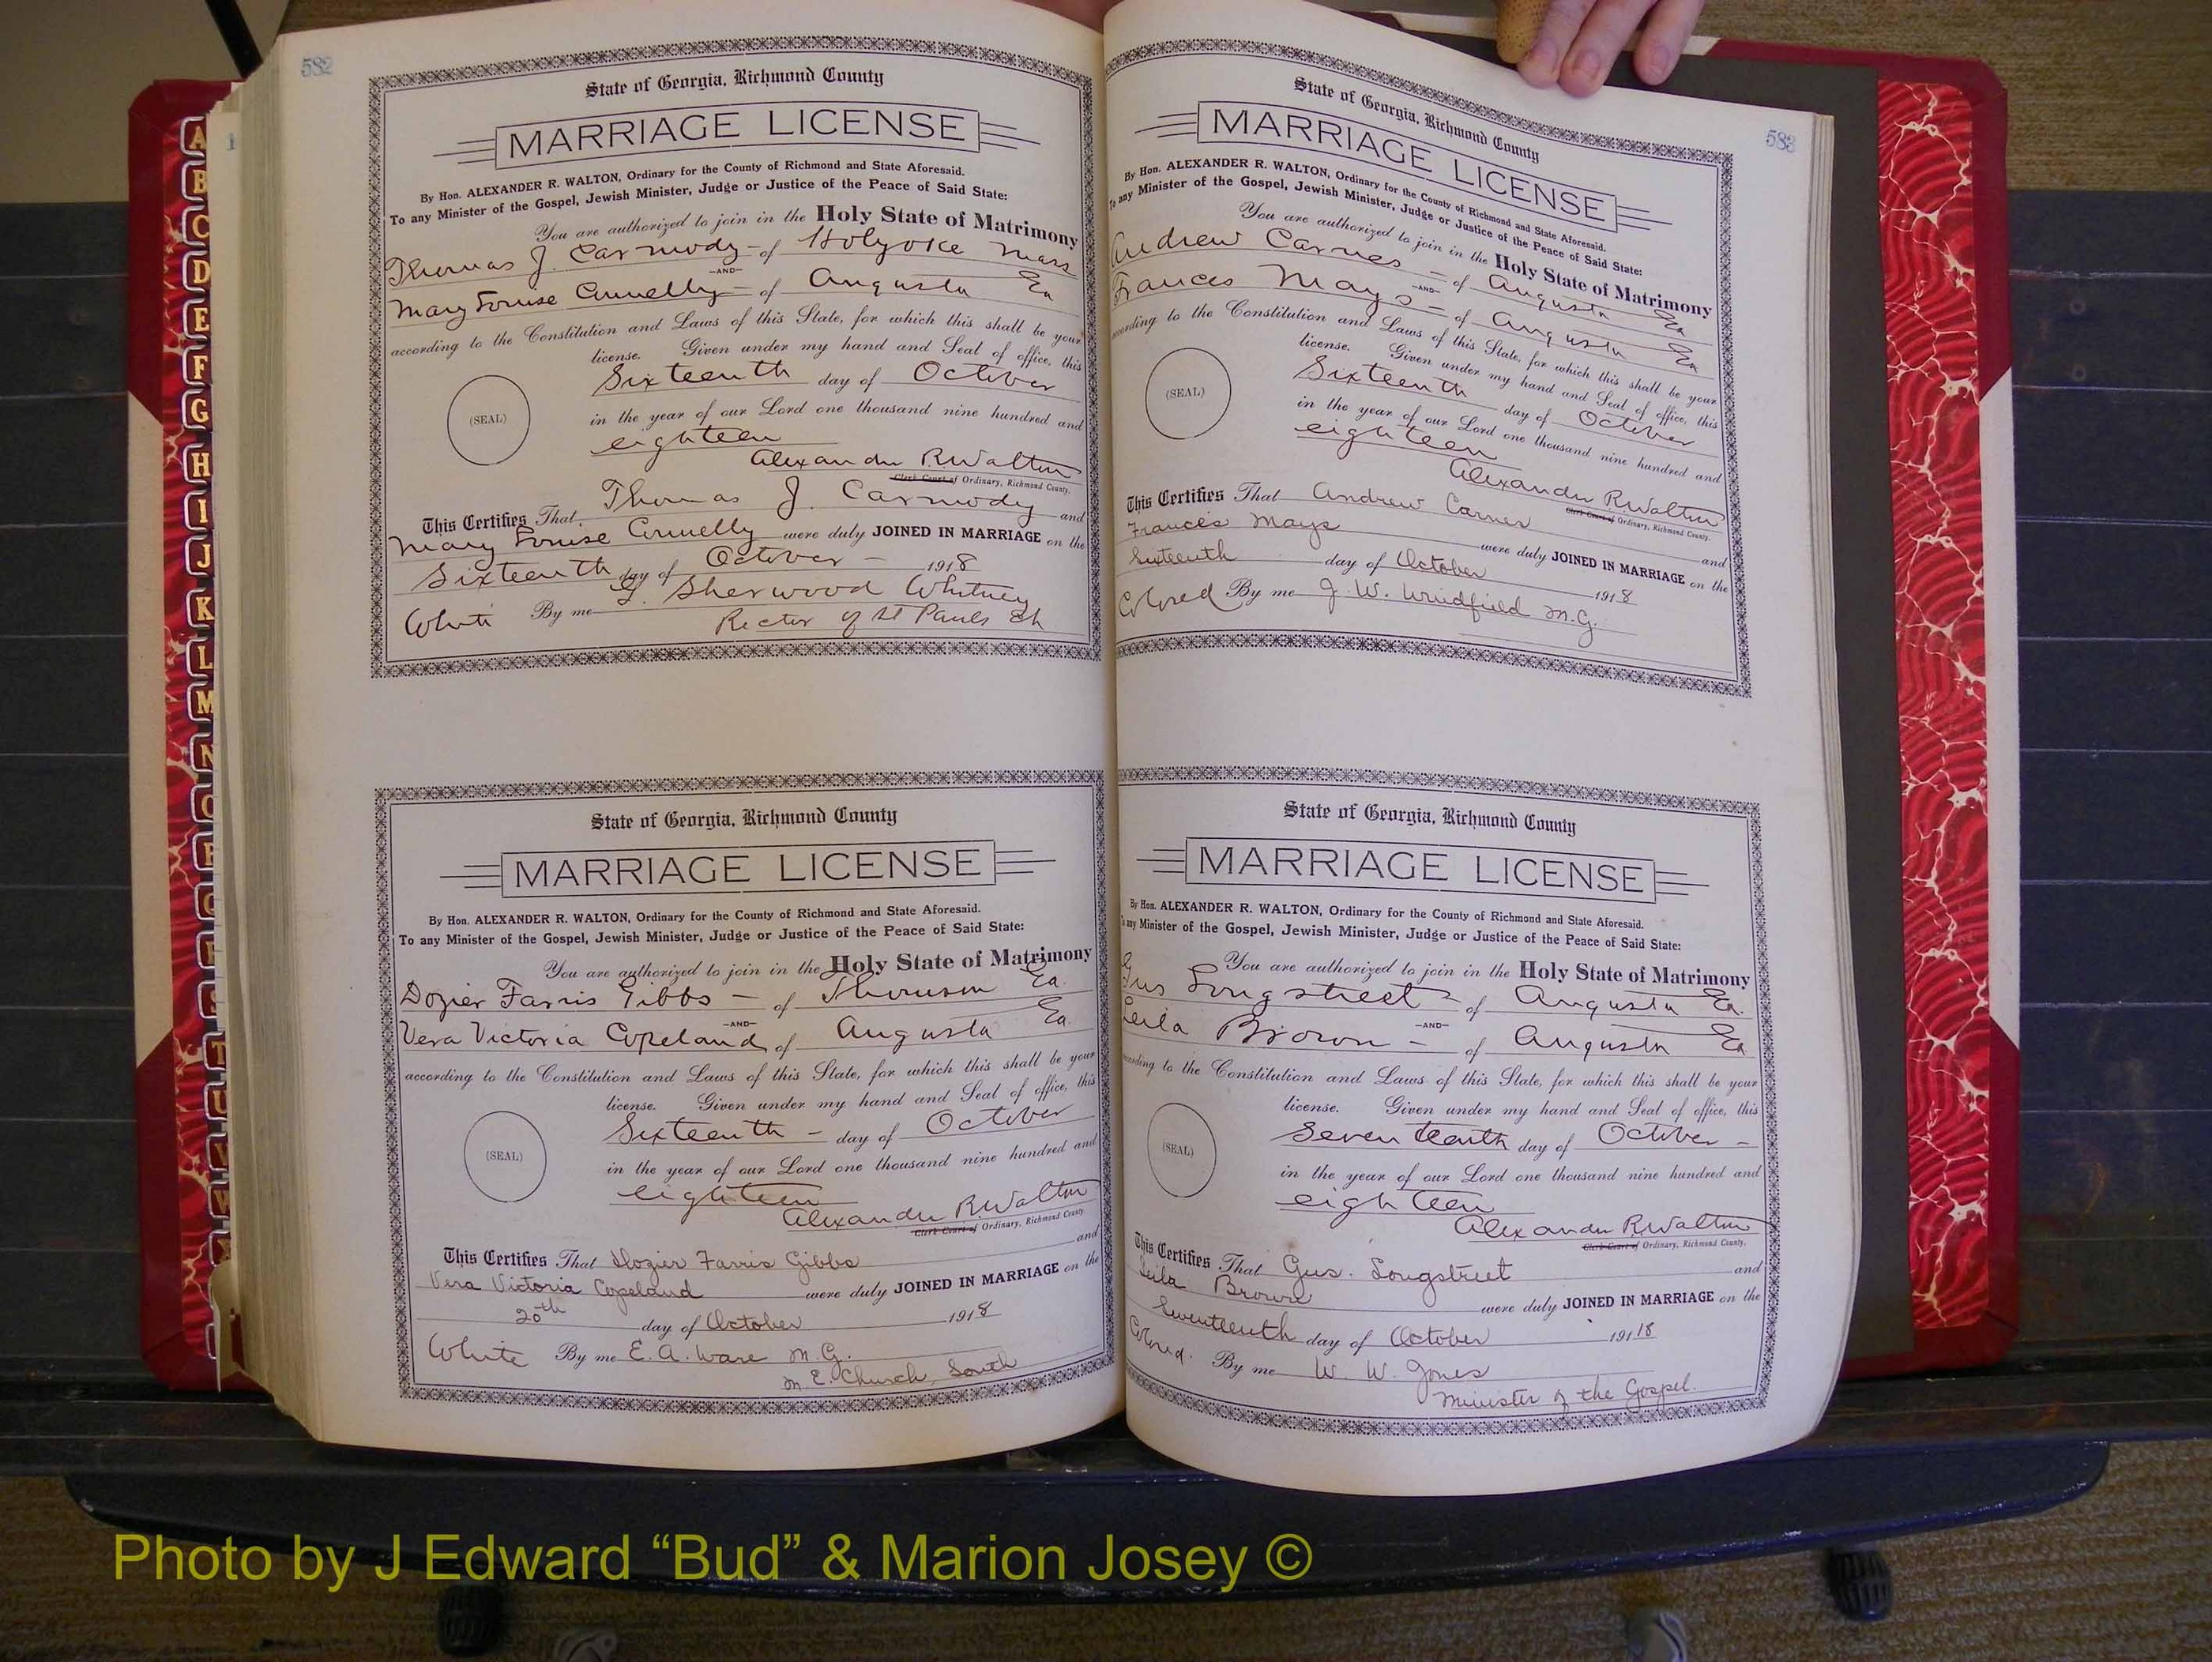 582
State of Georgia, Richmond County
MARRIAGE LICENSE
By Hon. ALEXANDER R. WALTON, Ordinary for the County of Richmond and State Aforesaid.
To any Minister of the Gospel, Jewish Minister, Judge or Justice of the Peace of Said State:
You are authorized to join in the Holy State of Matrimony
Thomas J. Carmody - of Holyoke Mass
-AND-
Mary Louise Connelly - of Augusta Ga
according to the Constitution and Laws of this State, for which this shall be your
license. Given under my hand and Seal of office, this
Sixteenth day of October
(SEAL)
in the year of our Lord one thousand nine hundred and
eighteen
Alexander R Walton
Clerk Court of Ordinary, Richmond County.
This Certifies That Thomas J. Carmody and
Mary Louise Connelly were duly JOINED IN MARRIAGE on the
Sixteenth day of October - 1918
White By me G. Sherwood Whitney
Rector of St Pauls Ch
State of Georgia, Richmond County
MARRIAGE LICENSE
By Hon. ALEXANDER R. WALTON, Ordinary for the County of Richmond and State Aforesaid.
To any Minister of the Gospel, Jewish Minister, Judge or Justice of the Peace of Said State:
You are authorized to join in the Holy State of Matrimony
Dozier Farris Gibbs - of Thomson Ga.
-AND-
Vera Victoria Copeland of Augusta Ga
according to the Constitution and Laws of this State, for which this shall be your
license. Given under my hand and Seal of office, this
Sixteenth - day of October
(SEAL)
in the year of our Lord one thousand nine hundred and
eighteen
Alexander R Walton
Clerk Court of Ordinary, Richmond County.
This Certifies That Dozier Farris Gibbs and
Vera Victoria Copeland were duly JOINED IN MARRIAGE on the
20th day of October 1918
White By me E. A. Ware M. G.
M. E. Church, South
583
State of Georgia, Richmond County
MARRIAGE LICENSE
By Hon. ALEXANDER R. WALTON, Ordinary for the County of Richmond and State Aforesaid.
To any Minister of the Gospel, Jewish Minister, Judge or Justice of the Peace of Said State:
You are authorized to join in the Holy State of Matrimony
Andrew Carnes - of Augusta Ga
-AND-
Frances Mays - of Augusta Ga
according to the Constitution and Laws of this State, for which this shall be your
license. Given under my hand and Seal of office, this
Sixteenth day of October
(SEAL)
in the year of our Lord one thousand nine hundred and
eighteen
Alexander R Walton
Clerk Court of Ordinary, Richmond County.
This Certifies That Andrew Carnes and
Frances Mays were duly JOINED IN MARRIAGE on the
Sixteenth day of October 1918
Colored By me J. W. M.G.
State of Georgia, Richmond County
MARRIAGE LICENSE
By Hon. ALEXANDER R. WALTON, Ordinary for the County of Richmond and State Aforesaid.
To any Minister of the Gospel, Jewish Minister, Judge or Justice of the Peace of Said State:
You are authorized to join in the Holy State of Matrimony
Gus Longstreet - of Augusta Ga.
-AND-
Leila Brown - of Augusta Ga
according to the Constitution and Laws of this State, for which this shall be your
license. Given under my hand and Seal of office, this
Seventeenth day of October -
(SEAL)
in the year of our Lord one thousand nine hundred and
eighteen
Alexander R Walton
Clerk Court of Ordinary, Richmond County.
This Certifies That Gus. Longstreet and
Leila Brown were duly JOINED IN MARRIAGE on the
Seventeenth day of October 19118
Colored. By me W. W. Jones
Minister of the Gospel.
A
B
C
D
E
F
G
H
I
J
K
L
M
N
O
P
Q
R
S
T
U
V
W
Photo by J Edward “Bud” & Marion Josey ©